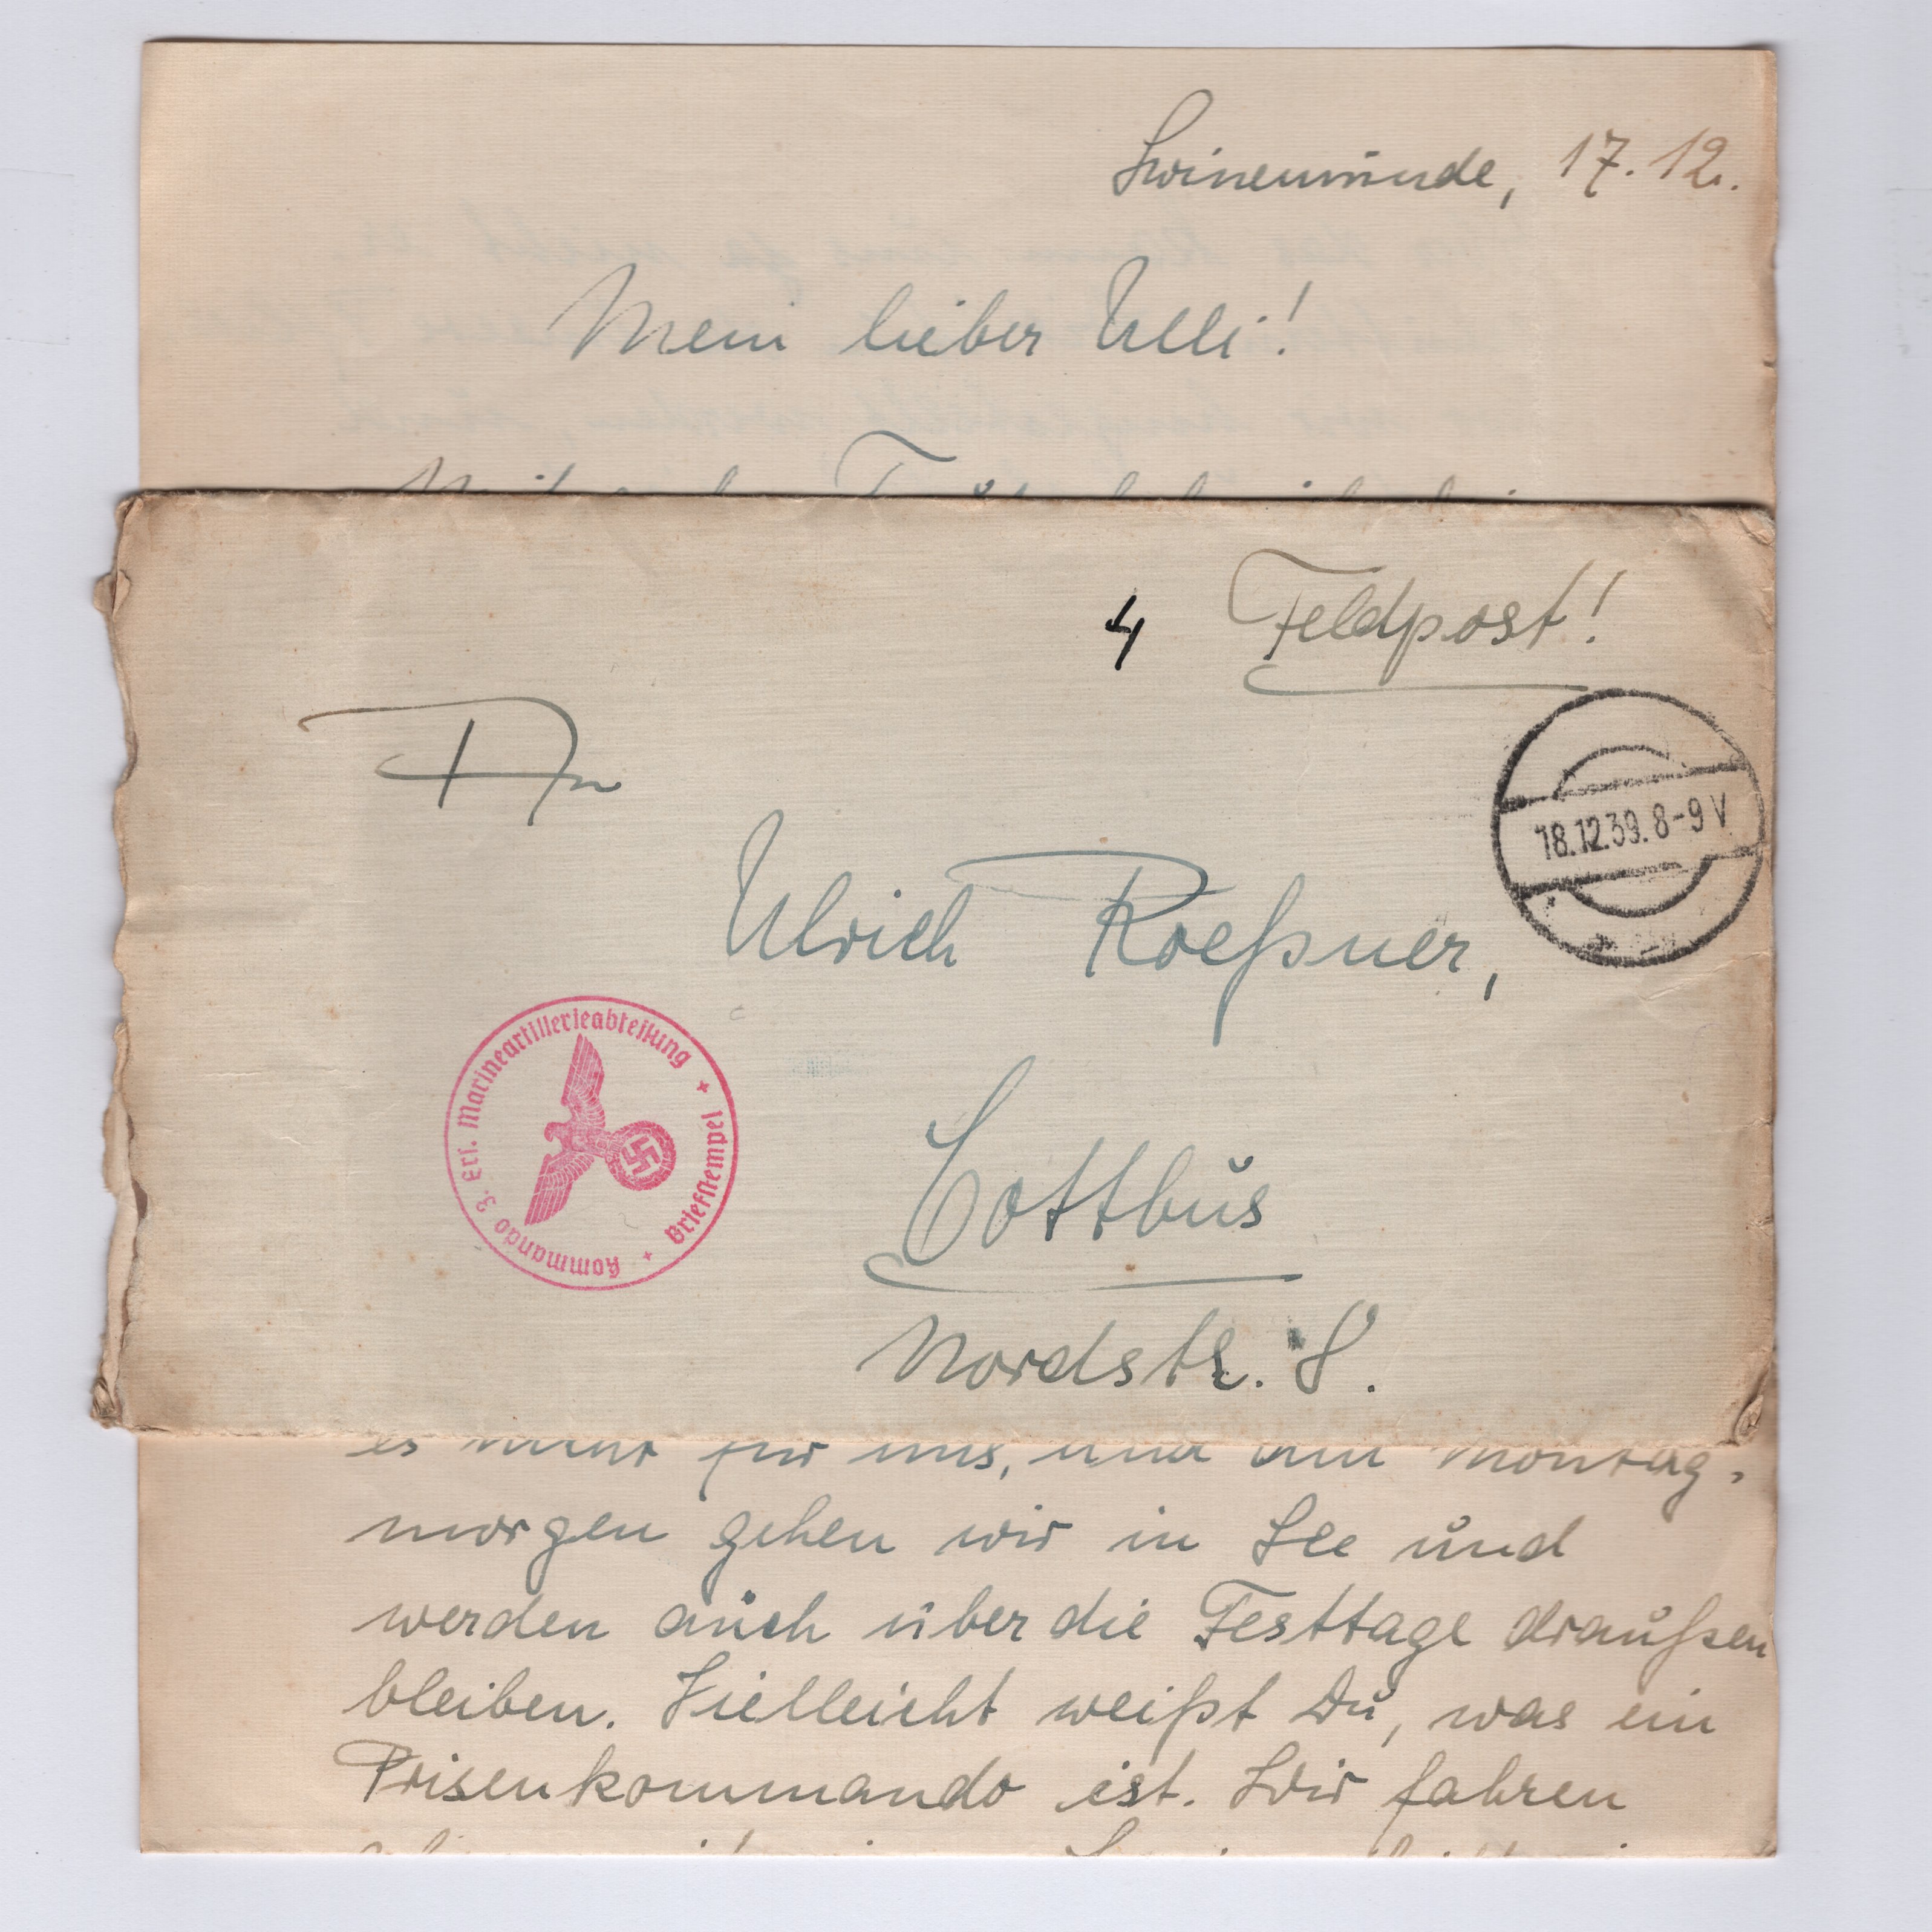 Swinemünde, 17.12.
Mein lieber Ulli!
4 Feldpost!
An
18.12.39.8-9 V
Ulrich Roeßner,
Kommando 3. Ers. Marineartillerieabteilung
+ Briefstempel +
Cottbus
Nordstr. 8.
es nicht für uns, und am Montag-
morgen gehen wir in See und
werden auch über die Festtage draußen
bleiben. Vielleicht weißt Du, was ein
Prisenkommando ist. Wir fahren